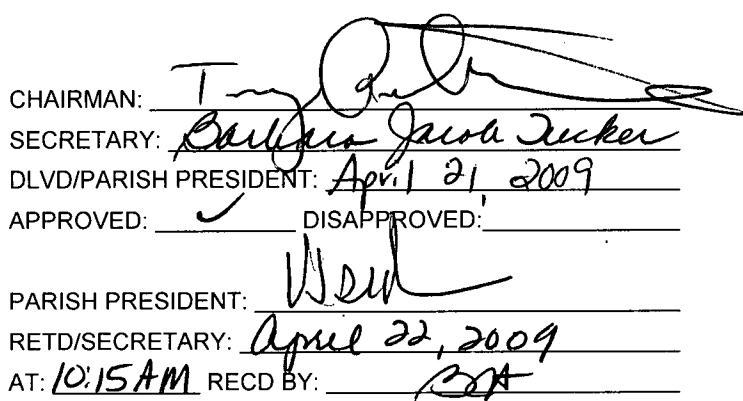 CHAIRMAN:
SECRETARY: Barbara Jacob Tucker
DLVD/PARISH PRESIDENT: April 21, 2009
APPROVED: ✓ DISAPPROVED:
PARISH PRESIDENT:
RETD/SECRETARY: April 22, 2009
AT: 10:15 AM RECD BY: